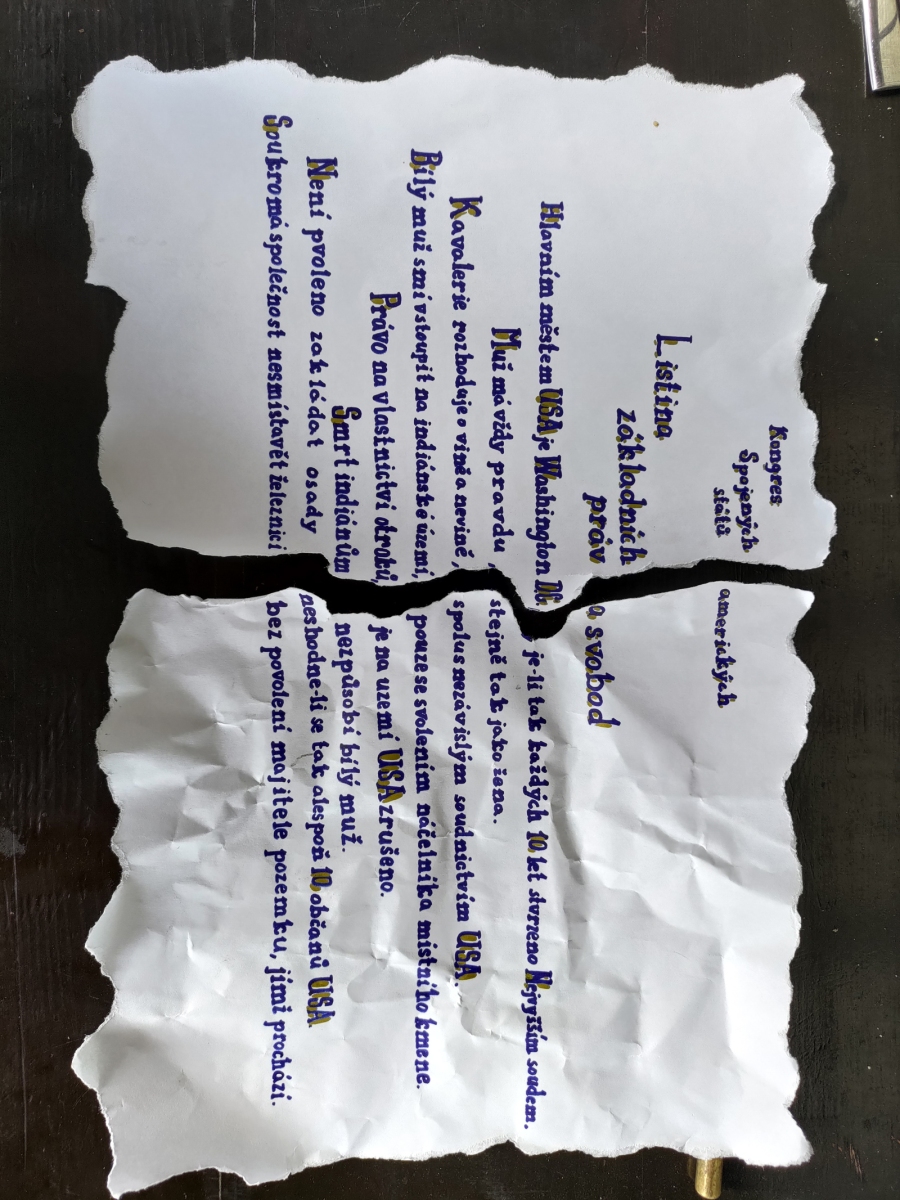 Kongres
Spojených
států amerických
Listina
základních
práv a svobod
Hlavním městem USA je Washington Dc, je-li tak každých 10 let stvrzeno Nejvyšším soudem.
Muž má vždy pravdu, stejně tak jako žena.
Kavalerie rozhoduje o vině a nevině, spolu s nezávislým soudnictvím USA.
Bílý muž smí vstoupit na indiánské území, pouze se svolením náčelníka místního kmene.
Právo na vlastnictví otroků, je na uzemí USA zrušeno.
Smrt indiánům nezpůsobí bílý muž.
Není pvoleno zakládat osady neshodne-li se tak alespoň 10, občanů USA
Soukromá společnost nesmí stavět železnici bez povolení majitele pozemku, jímž prochází.